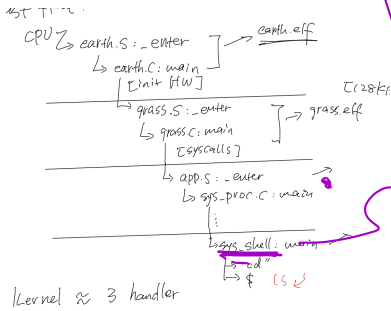 CPU ↳ earth.S: _enter → earth.eff
↳ earth.c: main
[init HW]
↳ grass.S: _enter → grass.eff
↳ grass.c: main
[syscalls]
↳ app.S: _enter →
↳ sys_proc.c: main
⋮
↳ sys_shell: main
→ "cd"
→ $ ls ↙
Kernel ≈ 3 handler